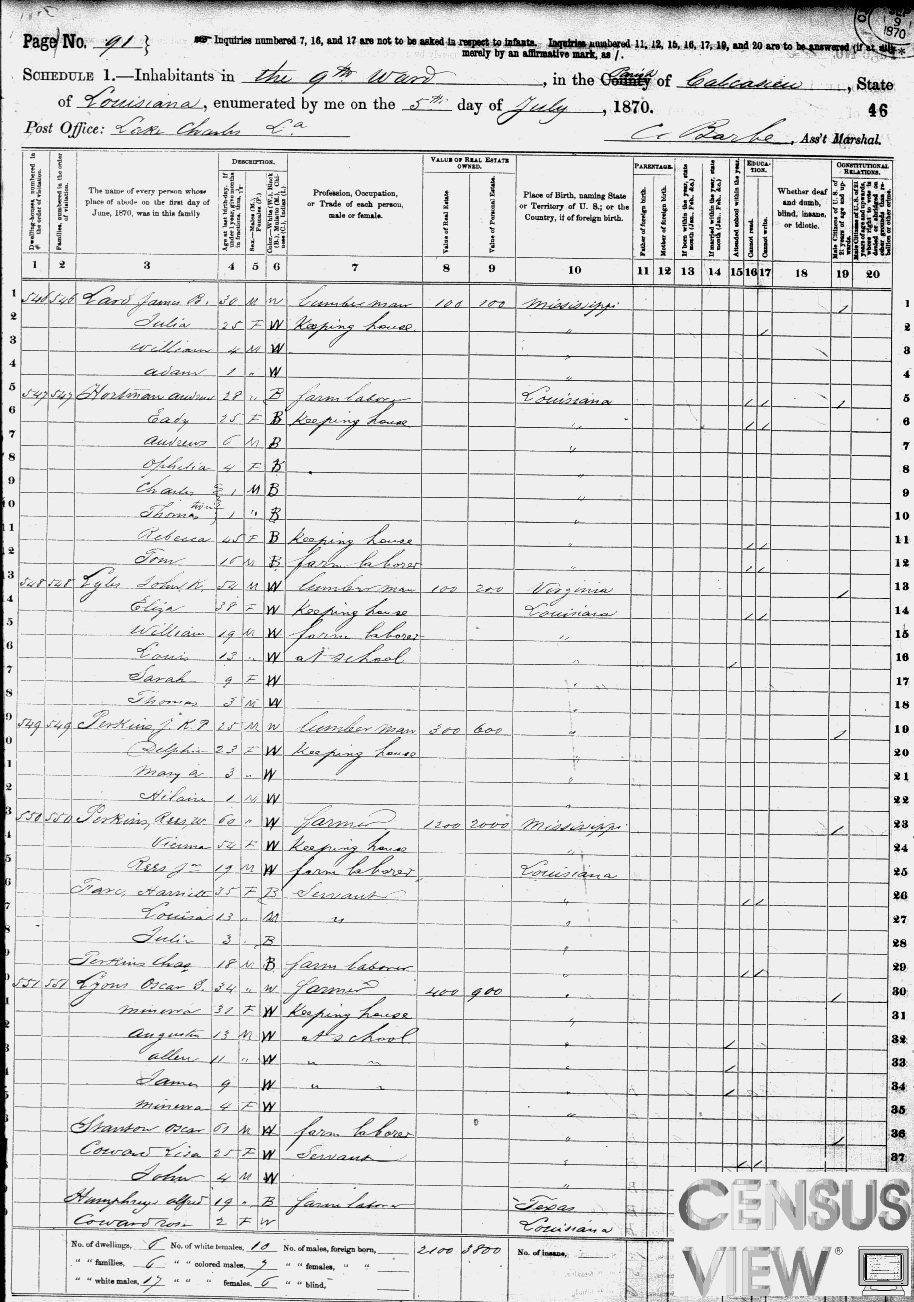 Page No. 91
Inquiries numbered 7, 16, and 17 are not to be asked in respect to infants. Inquiries numbered 11, 12, 15, 16, 17, 19, and 20 are to be answered (if at all)
merely by an affirmative mark, as /.
SCHEDULE 1.—Inhabitants in the 9th Ward, in the County of Calcasieu, State
of Louisiana, enumerated by me on the 5th day of July, 1870. 46
Post Office: Lake Charles La C. Barbe, Ass't Marshal.
Dwelling-houses, numbered in the order of visitation.
Families, numbered in the order of visitation.
The name of every person whose place of abode on the first day of June, 1870, was in this family
DESCRIPTION.
Age at last birth-day. If under 1 year, give months in fractions, thus, 3/12
Sex.—Males (M.), Females (F.)
Color.—White (W.), Black (B.), Mulatto (M.), Chinese (C.), Indian (I.)
Profession, Occupation, or Trade of each person, male or female.
VALUE OF REAL ESTATE OWNED.
Value of Real Estate.
Value of Personal Estate.
Place of Birth, naming State or Territory of U. S.; or the Country, if of foreign birth.
PARENTAGE.
Father of foreign birth.
Mother of foreign birth.
If born within the year, state month (Jan., Feb., &c.)
If married within the year, state month (Jan., Feb., &c.)
Attended school within the year.
EDUCATION.
Cannot read.
Cannot write.
Whether deaf and dumb, blind, insane, or idiotic.
CONSTITUTIONAL RELATIONS.
Male Citizens of U. S. of 21 years of age and upwards.
1 2 3 4 5 6 7 8 9 10 11 12 13 14 15 16 17 18 19 20
1 546 546 Lard James B. 30 M W lumber man 100 100 Mississippi / 1
2 Julia 25 F W Keeping house " / 2
3 William 4 M W " 3
4 Adam 1 " W " 4
5 547 547 Hortman Andrew 28 " B farm labor Louisiana / / / 5
6 Eady 25 F B Keeping house " / / 6
7 Andrews 6 M B " 7
8 Ophelia 4 F B " 8
9 Charles 1 M B " 9
10 Thomas twins 1 " B " 10
11 Rebecca 45 F B Keeping house " / / 11
12 Tom 16 M B farm laborer " / / 12
13 548 548 Lyles John K. 54 M W lumber man 100 200 Virginia / 13
14 Eliza 38 F W Keeping house Louisiana / / 14
15 William 19 M W farm laborer " 15
16 Louis 13 " W at school " / 16
17 Sarah 9 F W " 17
18 Thomas 3 M W " 18
19 549 549 Perkins J. K. P. 25 M W lumber man 300 600 " / 19
20 Delphin 23 F W Keeping house " 20
21 Mary A 3 " W " 21
22 Hilaire 1 M W " 22
23 550 550 Perkins, Rees W. 60 " W farmer 1200 2000 Mississippi / 23
24 54 F W Keeping house " 24
25 Rees Jr 19 M W farm laborer Louisiana 25
26 Harriett 35 F B Servant " / / 26
27 Louisa 13 " M " " 27
28 Julia 3 " B " 28
29 Perkins Chas 18 M B farm laborer " / / 29
30 551 551 Lyons Oscar 34 " W farmer 400 900 " / 30
31 Minerva 31 F W Keeping house " 31
32 Augustus 13 M W at school " / 32
33 Allen 11 " W " " " / 33
34 James 9 W " " " / 34
35 Minerva 4 F W " 35
36 Oscar 61 M W farm laborer " / 36
37 Coward Liza 25 F W Servant " / / 37
John 4 M W "
Humphrey Alfred 19 " B farm labor Texas
Coward Rose 2 F W Louisiana
No. of dwellings, 6 No. of white females, 10 No. of males, foreign born, 2100 3800 No. of insane,
" " families, 6 " " colored males, 7 " " females, " "
" " white males, 17 " " " females, 6 " " blind,
CENSUS
VIEW®